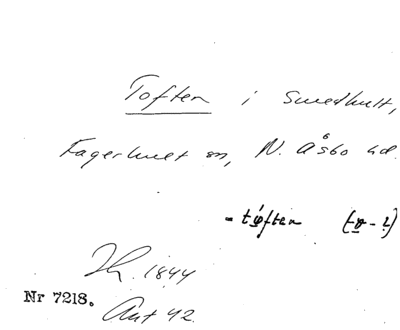 Toften i Smedhult,
Fagerhult sn, N. Åsbo hd.
- tøften
1844
Nr 7218.
Ant 42